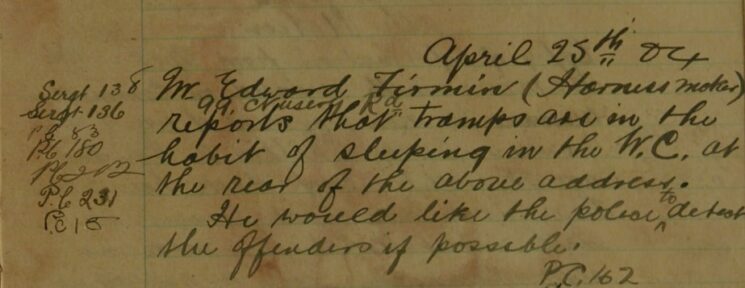 April 25th 04
Sergt 138
Mr Edward Firmin (Harness maker)
Sergt 136
99, Crusers Rd
P.C. 53
reports that tramps are in the
P.C. 180
habit of sleeping in the W.C. at
P.C. 231
the rear of the above address.
P.C 15
He would like the police to detect
the offenders if possible.
P.C. 162